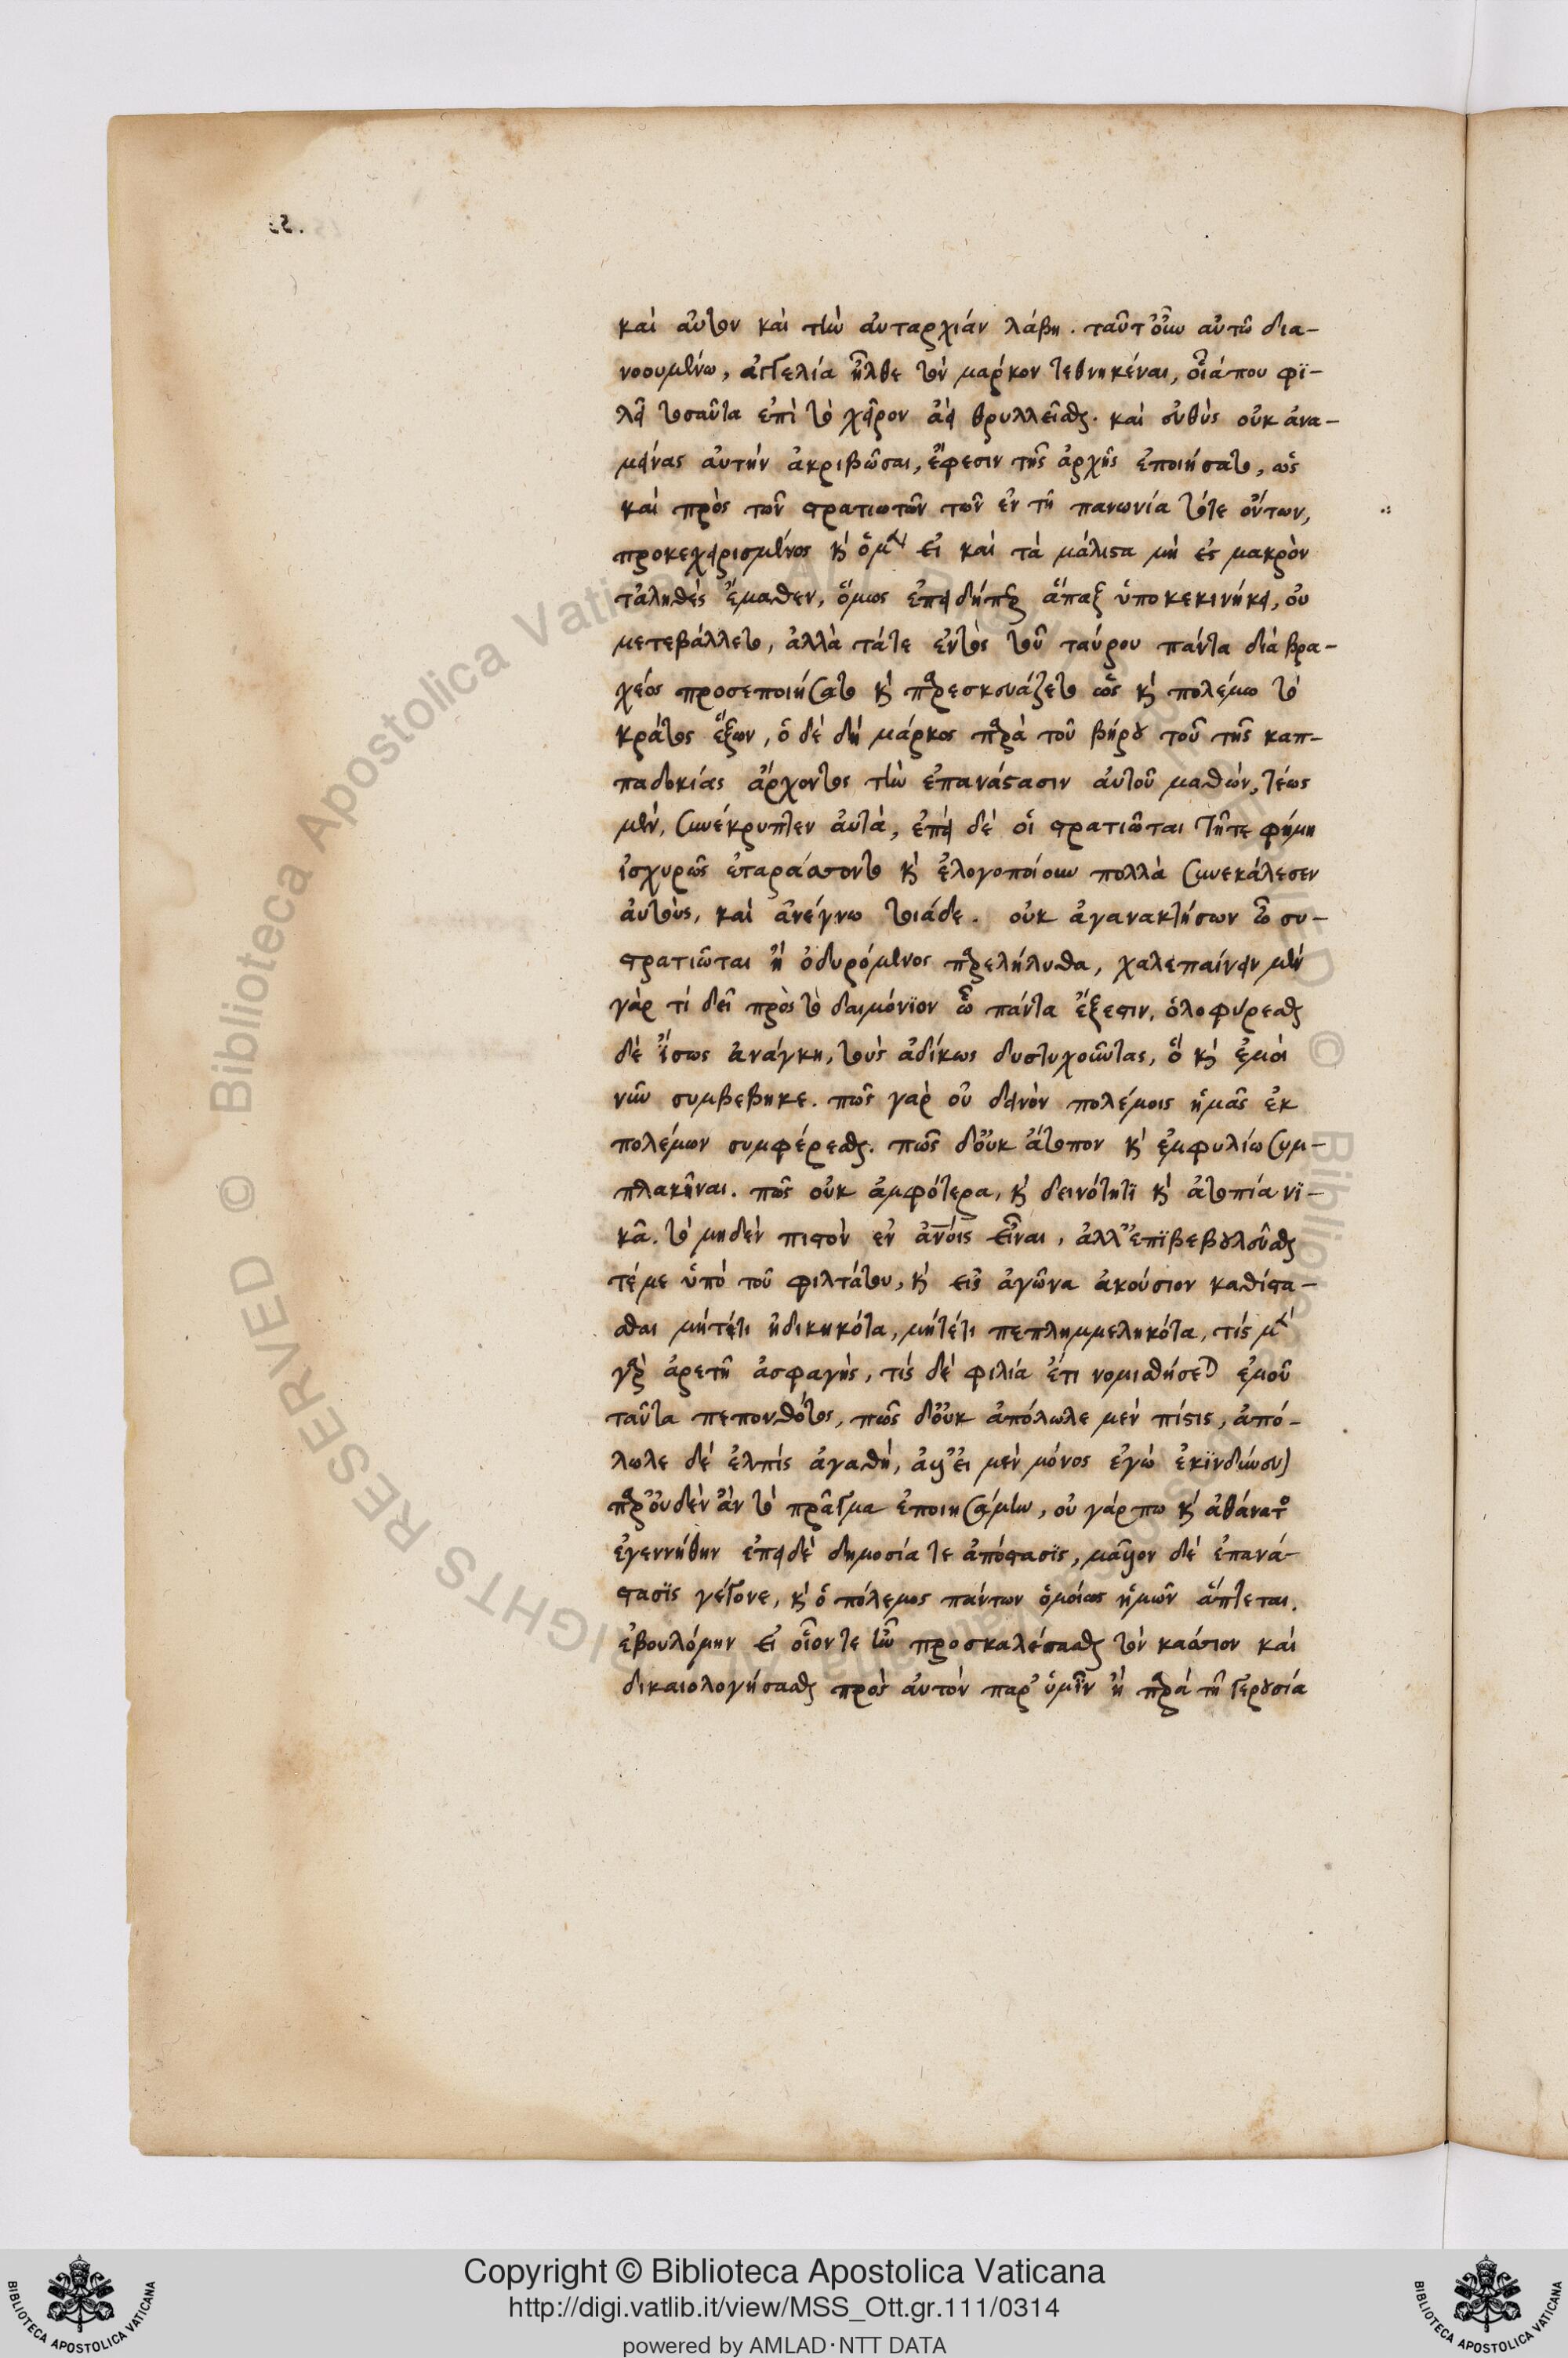 και αὐτὸν και τὴν αὐταρχιάν λάβη. ταῦτ οὖν αὐτῶ δια-
νοουμένω, ἀγγελία ἦλθε τὸν μαρκον τεθνηκέναι, οἷάπου φϊ-
λεῖ τοσαῦτα ἐπὶ τὸ χεῖρον ἀεὶ θρυλλεῖσθαι. και εὐθὺς οὐκ ἀνα-
μείνας αὐτὴν ἀκριβῶσαι, ἔφεσιν τῆς ἀρχῆς ἐποιήσατο, ὡς
και πρὸς τῶν στρατιωτῶν τῶν ἐν τῆ πανωνία τότε ὄντων,
προκεχειρισμένος
τἀληθὲς ἔμαθεν, ὅμως ἐπειδήπερ ἅπαξ ὑποκεκινήκει, οὐ
μετεβάλλετο, ἀλλὰ τάτε ἐντὸς τοῦ ταύρου πάντα διὰ βρα-
χέος προσεποιήσατο καὶ παρεσκευάζετο ὡς καὶ πολέμω τὸ
κράτος ἕξων, ὁ δὲ δὴ μάρκος παρὰ τοῦ βήρου τοῦ τῆς καπ-
παδοκίας ἄρχοντος τὴν ἐπανάστασιν αὐτοῦ μαθὼν, τέως
μὲν, συνέκρυπτεν αὐτὰ, ἐπεὶ δὲ οἱ στρατιῶται τῆτε φήμη
ἰσχυρῶς ἐταράσσοντο καὶ ἐλογοποίουν πολλὰ συνεκάλεσεν
αὐτοὺς, και ἀνέγνω τοιάδε. οὐκ ἀγανακτήσων ὦ συ-
στρατιῶται ἢ ὀδυρόμενος παρελήλυθα, χαλεπαίνειν μὲν
γὰρ τί δεῖ πρὸς τὸ δαιμόνϊον ὧ πάντα ἔξεστιν, ὀλοφύρεσθαι
δὲ ἴσως ἀνάγκη, τοὺς ἀδίκως δυστυχοῦντας, ὃ καὶ ἐμοὶ
νῦν συμβεβηκε. πῶς γὰρ οὐ δεινὸν πολέμοις ἡμᾶς ἐκ
πολέμων συμφέρεσθαι. πῶς δοὐκ ἄτοπον καὶ ἐμφυλίω συμ-
πλακῆναι. πῶς οὐκ ἀμφότερα, καὶ δεινότητϊ καὶ ἀτοπία νϊ-
κᾶ. τὸ μηδὲν πιστὸν ἐν ἀνοις εἶναι, ἀλλ’ ἐπϊβεβουλεῦσθαι
τέμε ὑπὸ τοῦ φιλτάτου, καὶ εἰς ἀγῶνα ἀκούσιον καθίστα-
σθαι μήτέτι ἠδικηκότα, μήτέτι πεπλημμεληκότα, τίς μὲν
γὰρ ἀρετὴ ἀσφαγὴς, τίς δὲ φιλία ἔτι νομισθήσεται ἐμοῦ
ταῦτα πεπονθότος, πῶς δοὐκ ἀπόλωλε μὲν πίστις, ἀπό-
λωλε δὲ ἐλπὶς ἀγαθή, ἀλλ’ εἰ μὲν μόνος ἐγὼ ἐκϊνδύνευον
παρ’ οὐδὲν ἂν τὸ πρᾶγμα ἐποιησάμην, οὐ γάρ πω καὶ ἀθάνατος
ἐγεννήθην ἐπεὶ δὲ δημοσία τε ἀπόστασϊς, μᾶλλον δὲ ἐπανά-
στασϊς γέγονε, καὶ ὁ πόλεμος πάντων ὁμοίως ἡμῶν ἅπτεται.
ἐβουλόμην εἰ οἷον τε ἦν προσκαλέσασθαι τὸν κάσσιον καὶ
δικαιολογήσασθαι πρὸς αὐτὸν παρ’ ὑμῖν ἢ παρὰ τῆ γερουσία
Copyright © Biblioteca Apostolica Vaticana
http://digi.vatlib.it/view/MSS_Ott.gr.111/0314
powered by AMLAD·NTT DATA
BIBLIOTECA APOSTOLICA VATICANA
BIBLIOTECA APOSTOLICA VATICANA